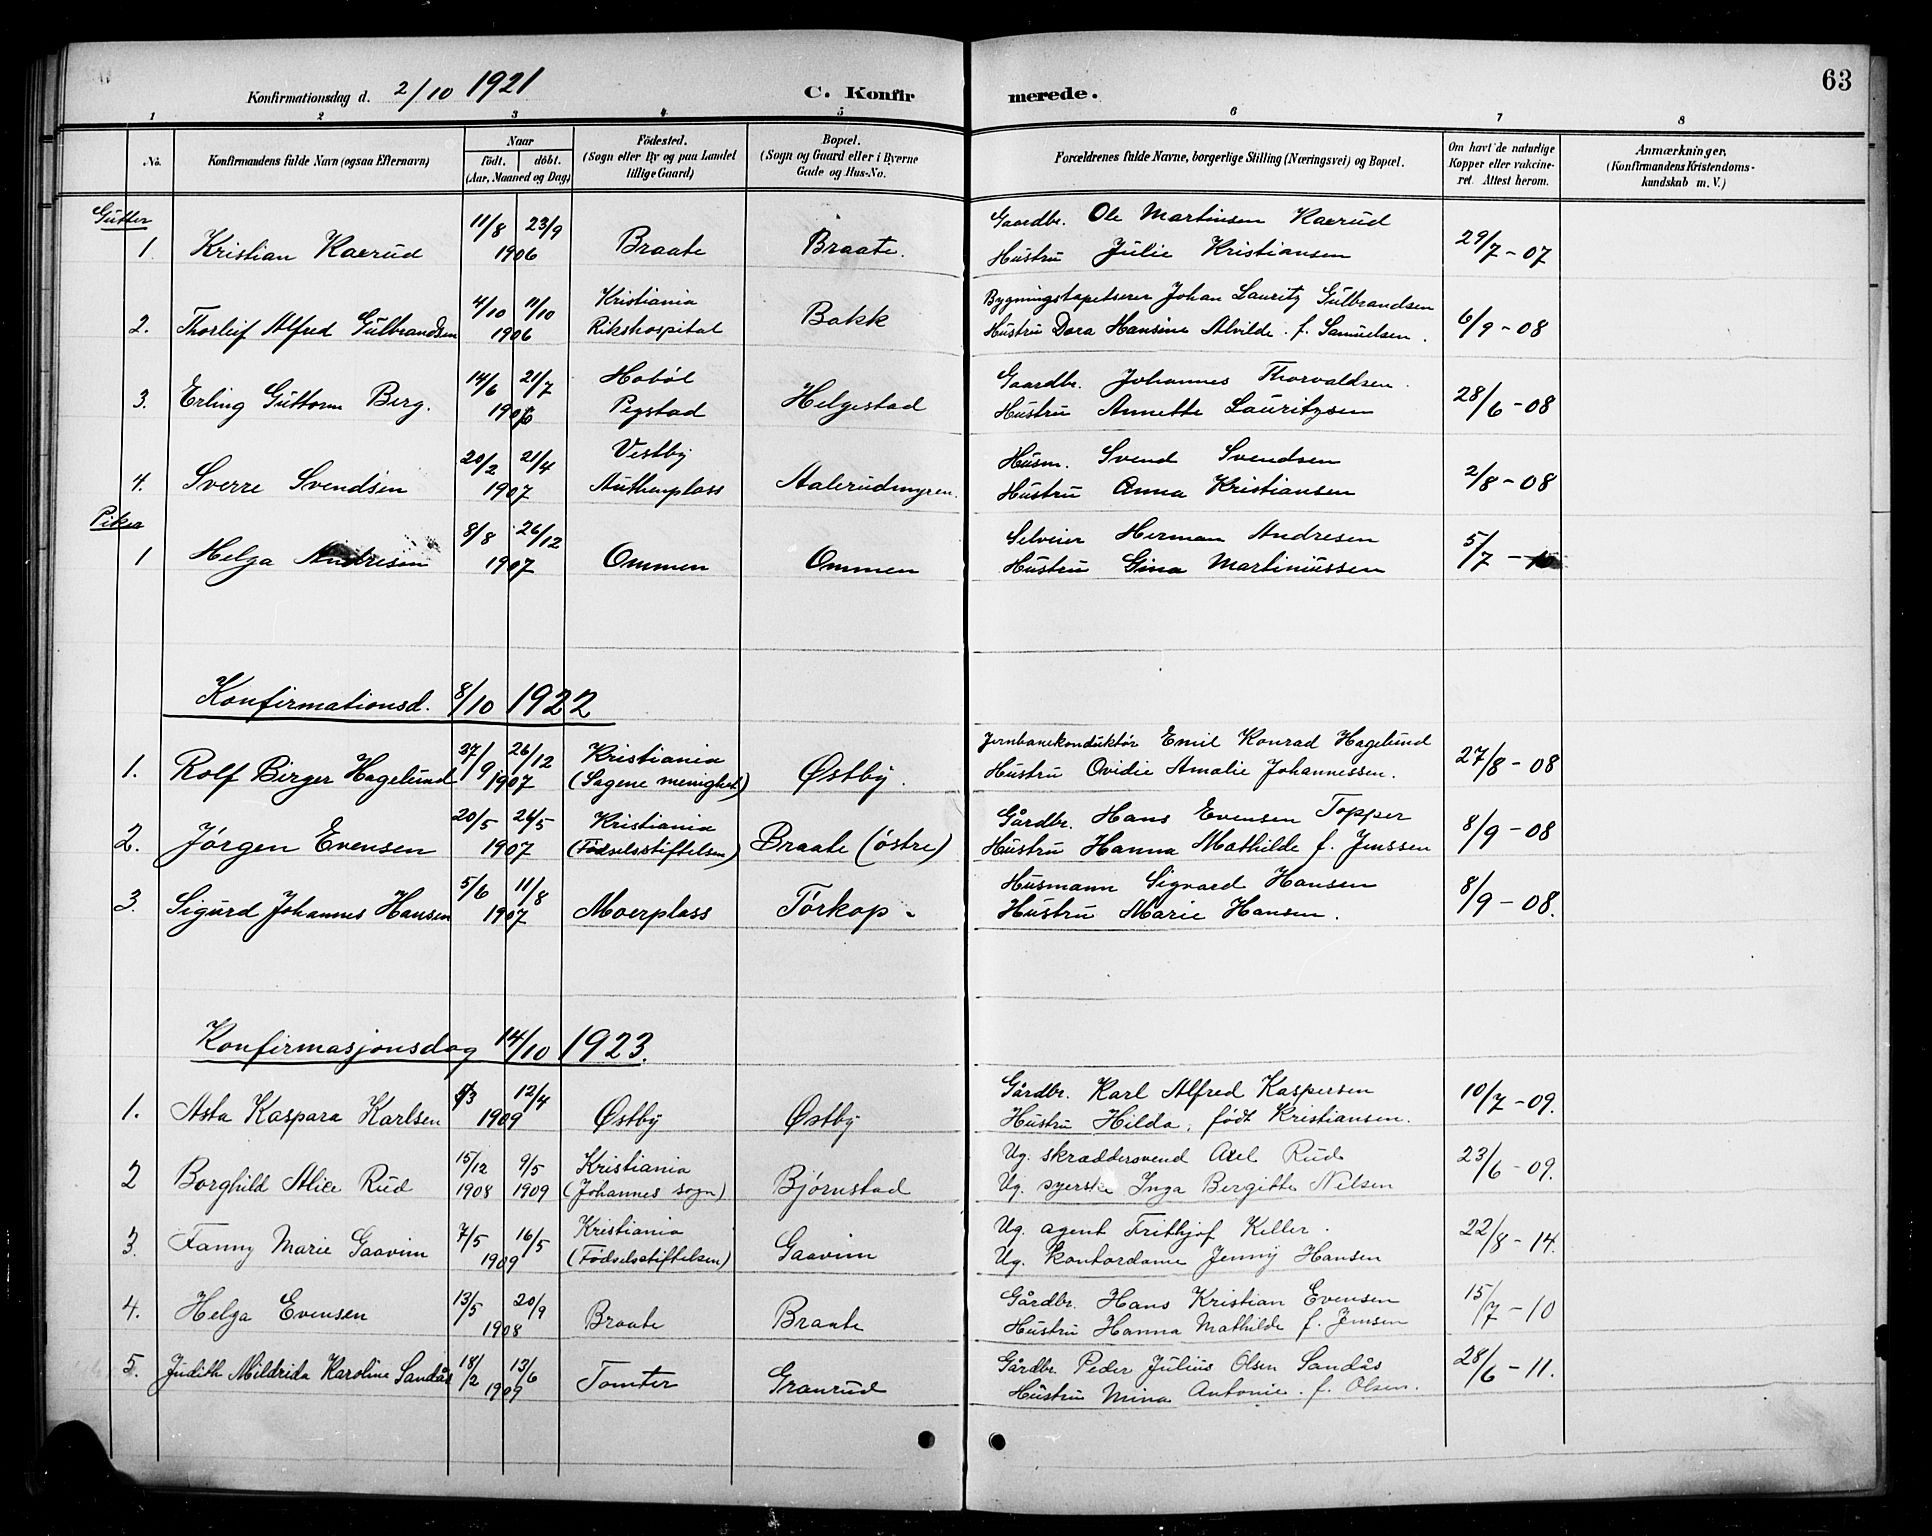 63
Konfirmationsdag d. 2/10 1921 C. Konfirmerede.
1 2 3 4 5 6 7 8
No.
Konfirmandens fulde Navn (ogsaa Efternavn)
Naar
födt. döbt.
(Aar, Maaned og Dag)
Födested.
(Sogn eller By og paa Landet
tillige Gaard)
Bopæl.
(Sogn og Gaard eller i Byerne
Gade og Hus-No.
Forældrenes fulde Navne, borgerlige Stilling (Næringsvei) og Bopæl.
Om havt de naturlige
Kopper eller vakcine-
ret. Attest herom.
Anmærkninger,
(Konfirmandens Kristendoms-
kundskab m. V.)
Gutter
1. Kristian Kaerud 11/8 23/9 1906 Braate Braate. Gaardbr. Ole Martinsen Kaerud
Hustru Julie Kristiansen 29/7 - 07
2. Thorleif Alfred Gulbrandsen 4/10 11/10 1906 Kristiania Rikshospital Bakk Bygningstapetserer Johan Lauritz Gulbrandsen
Hustru Dora Hansine Alvilde f. Samuelsen. 6/9 - 08
3. Erling Guttorm Berg. 14/6 21/7 1906 Hobøl Pegstad Helgestad Gaardbr. Johannes Thorvaldsen.
Hustru Annette Lauritzsen 28/6 - 08
4. Sverre Svendsen 20/2 21/4 1907 Vestby Authenplass Aalerudmyren. Husm. Svend Svendsen
Hustru Anna Kristiansen 2/8 - 08
Piker
1 Helga Andresen 8/8 26/12 1907 Ommen Ommen Selveier Herman Andresen
Hustru Gina Martiniussen 5/7 -
Konfirmationsd. 8/10 1922
1. Rolf Birger Hagelund 27/9 26/12 1907 Kristiania (Sagene menighet) Østby. Jernbanekonduktør Emil Konrad Hagelund
Hustru Ovidie Amalie Johannessen. 27/8 - 08
2. Jørgen Evensen 20/5 26/5 1907 Kristiania (Fødselsstiftelsen) Braate (østre) Gårdbr. Hans Evensen Topper
Hustru Hanna Mathilde f. Jenssen 8/9 - 08
3. Sigurd Johannes Hansen 5/6 11/8 1907 Moerplass Torkop. Husmann Sigvard Hansen
Hustru Marie Hansen. 8/9 - 08.
Konfirmasjonsdag 14/10 1923.
1. Asta Kaspara Karlsen /3 12/4 1909 Østby Østby Gårdbr. Karl Alfred Kaspersen
Hustru Hilda, født Kristiansen. 10/7 - 09.
2 Borghild Alice Rud 15/12 1908 9/5 1909 Kristiania (Johannes sogn) Bjørnstad Ug. skræddersvend Axel Rud
Ug. syerske Inga Bergitte Nilsen 23/6 - 09.
3. Fanny Marie Gaavim 7/5 16/5 1909 Kristiania (Fødselsstiftelsen) Gaavim Ug. agent Frithjof Keller.
Ug. kontordame Jenny Hansen 22/8 - 14.
4. Helga Evensen 13/5 20/9 1908 Braate Braate Gårdbr. Hans Kristian Evensen
Hustru Hanna Mathilde f. Jensen 15/7 - 10
5. Judith Mildrida Karoline Sandås 18/2 13/6 1909 Tomter Granrud Gårdbr. Peder Julius Olsen Sandås
Hustru Mina Antonie f. Olsen. 28/6 - 11.